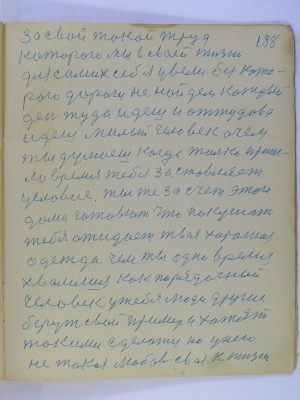 За свой такой труд
188
которого мы в своей жизни
для самих себя увели без кото-
рого дороги не найдем каждый
ден туда идеш и оттудова
идеш милый человек о чем
ты думаеш когда только приш-
ло время тебя заставляет
условие. ты те за счет этого
дома готовют что покушат
тебя ожидает твая хорошая
одежда чем ты одно время
хвалился как порядочный
человек у тебя люди другия
берут свой пример и хотят
такими сделати но у него
не такая любов своя к жизни